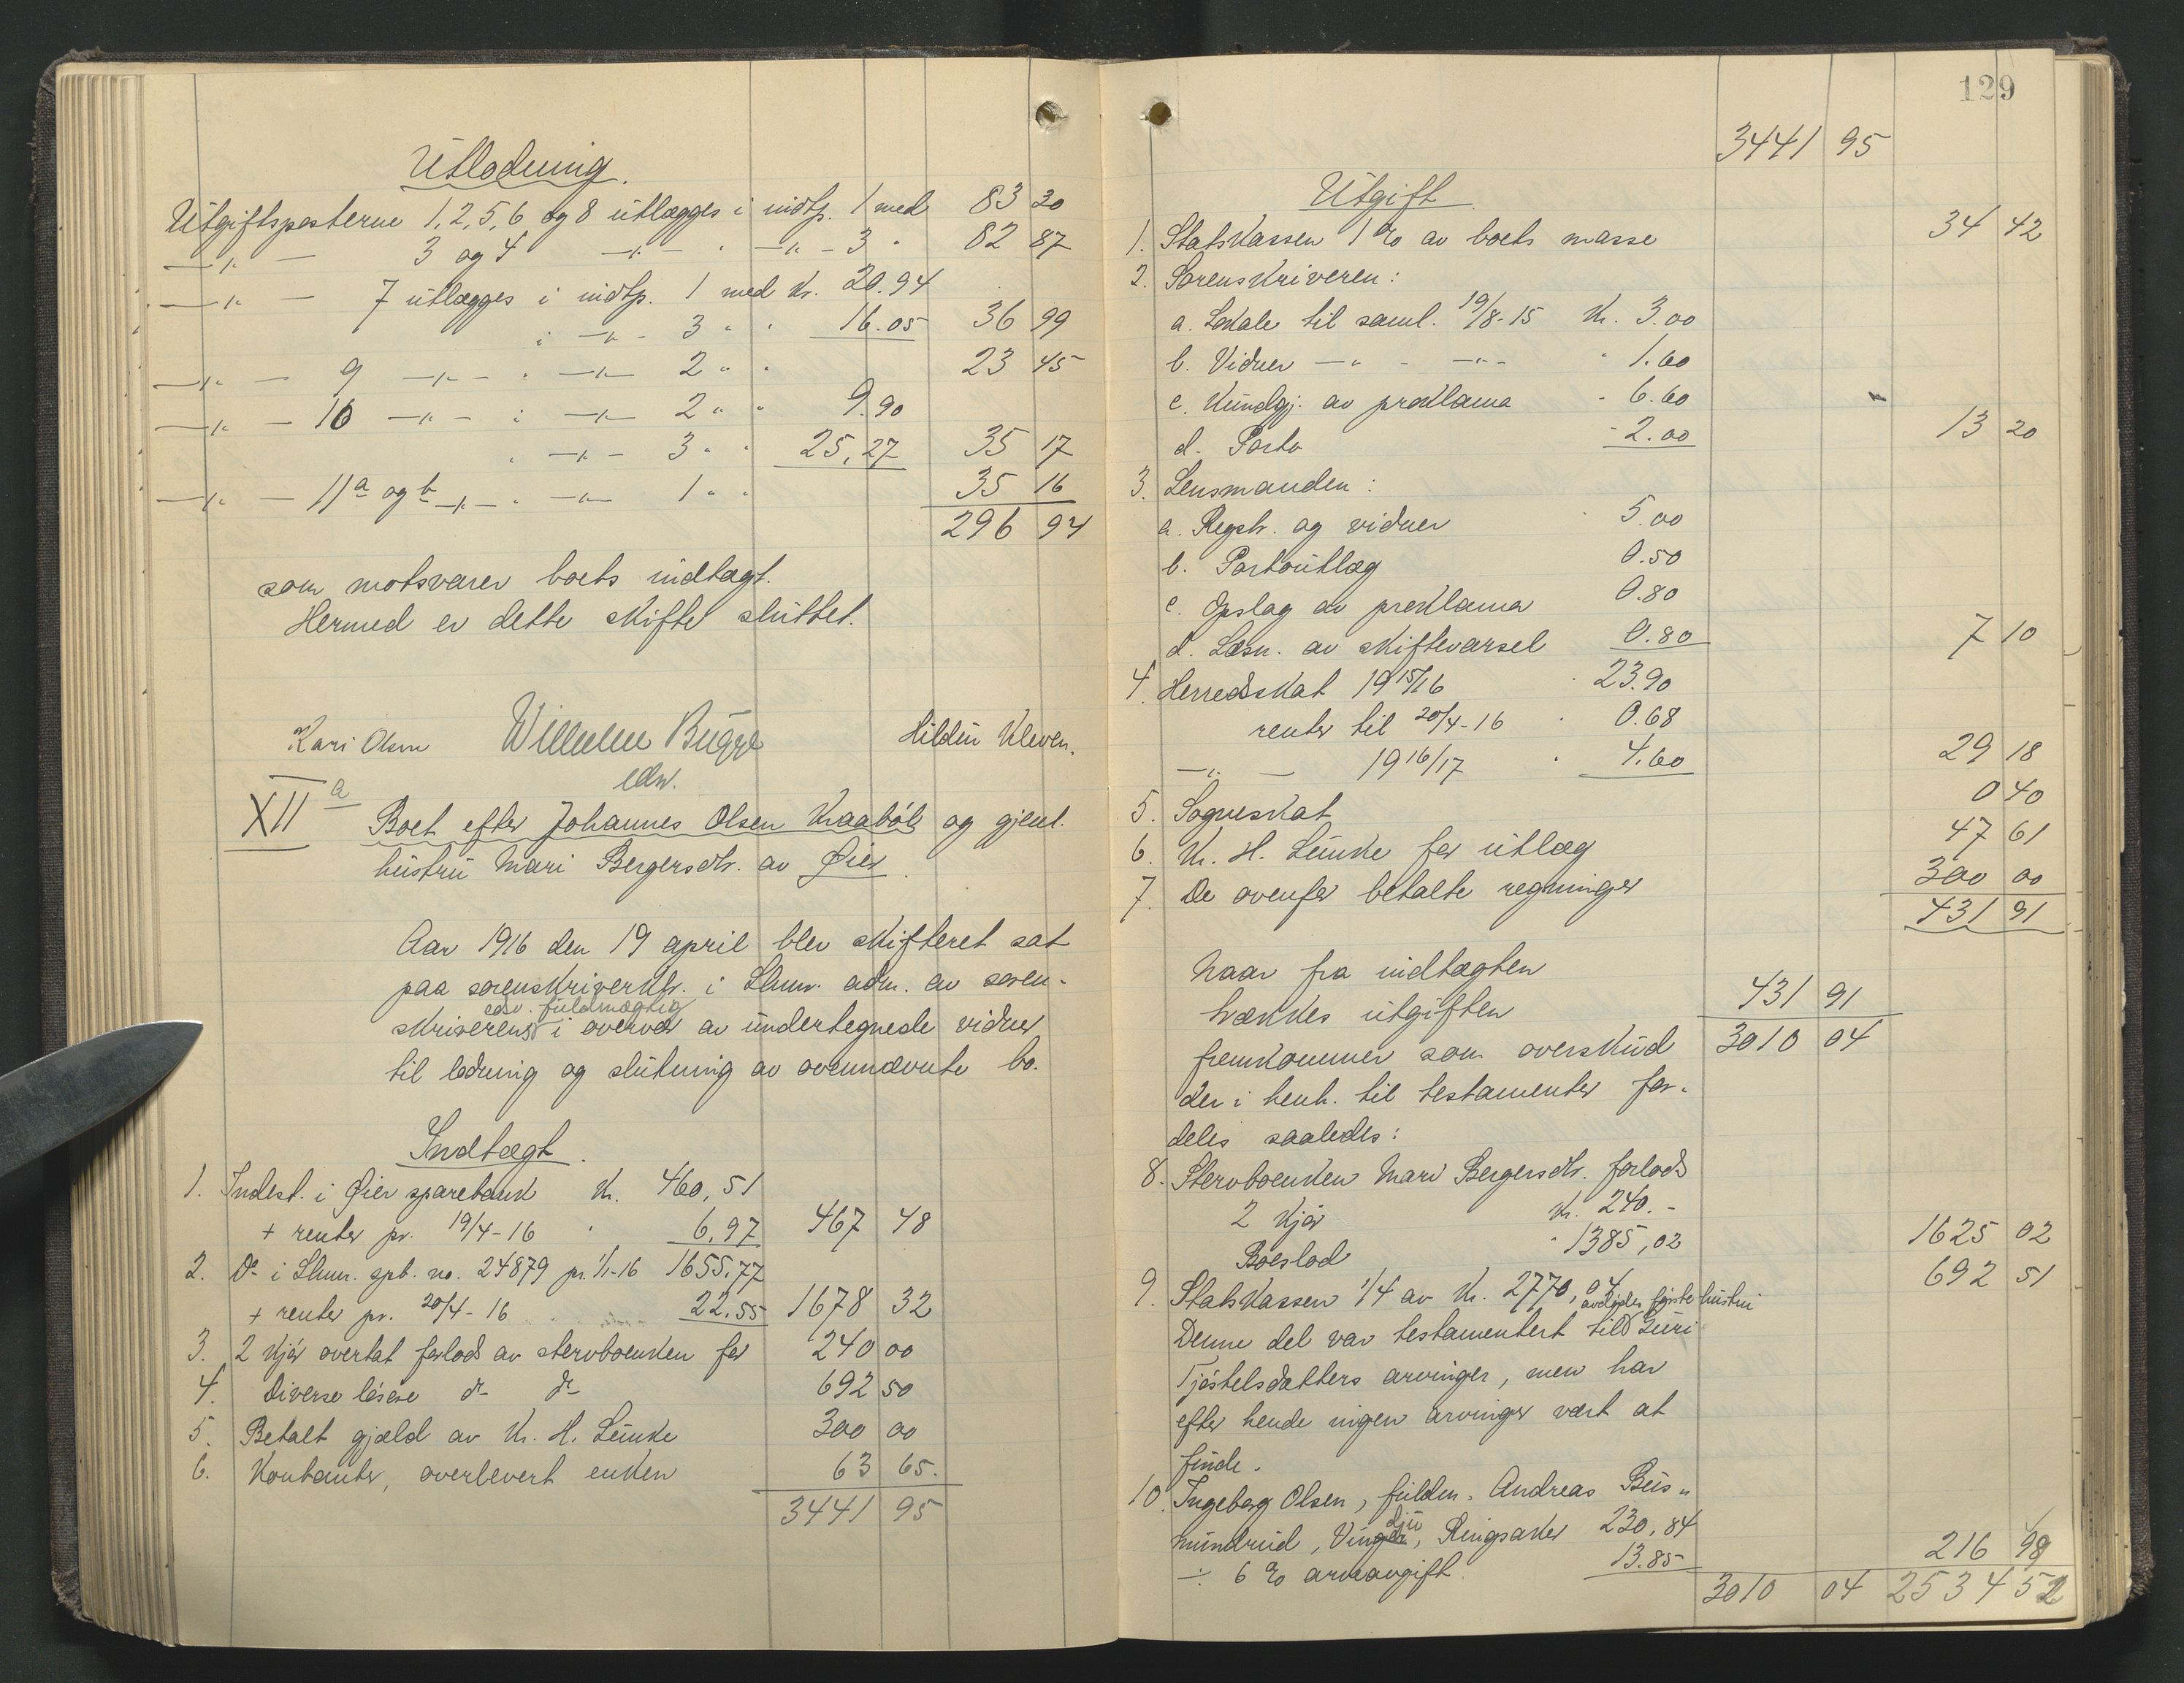 Utlodning.
Utgiftsposterne 1, 2, 5, 6 og 8 utlægges i indtp. 1 med 83 30
—"— 3 og 4 —"— " —"— 3 " 82 87
—"— 7 utlægges i indtp. 1 med Kr. 20.94
i —"— 3 " " 16.05 36 99
—"— 9 —"— " —"— 2 " " 23 45
—"— 10 —"— i —"— 2 " " 9.90
" —"— 3 " " 25,27 35 17
—"— 11a og b —"— " —"— 1 " " 35 16
296 94
som motsvarer boets indtægt.
Hermed er dette skifte sluttet.
Kari Olsen Wilhelm Bugge Hildur Kleven.
edsv.
XII a Boet efter Johannes Olsen Kraabøl og gjenl.
hustru Mari Bergersdtr. av Øier.
Aar 1916 den 19 april blev skifteret sat
paa sorenskriverktr. i Lhmr. adm. av soren-
edsv. fuldmægtig
skriverens i overvær av undertegnede vidner
til lodning og slutning av ovennævnte bo.
Indtægt.
1. Indest. i Øier sparebank Kr. 460,51
+ renter pr. 19/4-16 " 6,97 467 48
2. Do i Lhmr. spb. no. 24879 pr. 1/1-16 1655,77
+ renter pr. 20/4-16 22.55 1678 32
3. 2 kjør overtat forlods av stervboenken for 240 00
4. Diverse løsøre do do 692 50
5. Betalt gjæld av Kr. H. Lunke 300 00
6. Kontanter, overlevert enken 63 65.
3441 95
129
3441 95
Utgift.
1. Statskassen 1 % av boets masse 34 42
2. Sorenskriveren:
a. Lokale til saml. 19/8-15 Kr. 3.00
b. Vidner —"— —"— " 1.60
c. Kundgj. av proklama " 6.60
d. Porto " 2.00 13 20
3. Lensmanden:
a. Registr. og vidner " 5.00
b. Portoutlæg 0.50
c. Opslag av proklama 0.80
d. Læsn. av skiftevarsel 0.80 7 10
4. Herredsskat 1915/16 " 23.90
renter til 20/4-16 " 0.68
—"— 1916/17 " 4.60 29 18
5. Sogneskat 0 40
6. Kr. H. Lunke for utlæg 47 61
7. De ovenfor betalte regninger 300 00
431 91
Naar fra indtægten
trækkes utgiften 431 91
fremkommer som overskud 3010 04
der i henh. til testamenter for-
deles saaledes:
8. Stervboenken Mari Bergersdtr. forlods
2 kjør Kr. 240.-
Boeslod " 1385,02 1625 02
9. Statskassen 1/4 av Kr. 2770,04 692 51
avdødes første hustru
Denne del var testamentert til Guri
Tjøstelsdatters arvinger, men har
efter hende ingen arvinger vært at
finde.
10. Ingeborg Olsen, fuldm. Andreas Bus-
mundrud, Ving, Ringsaker 230,84
÷ 6 % arveavgift. 13.85 216 98
3010 04 2534 52